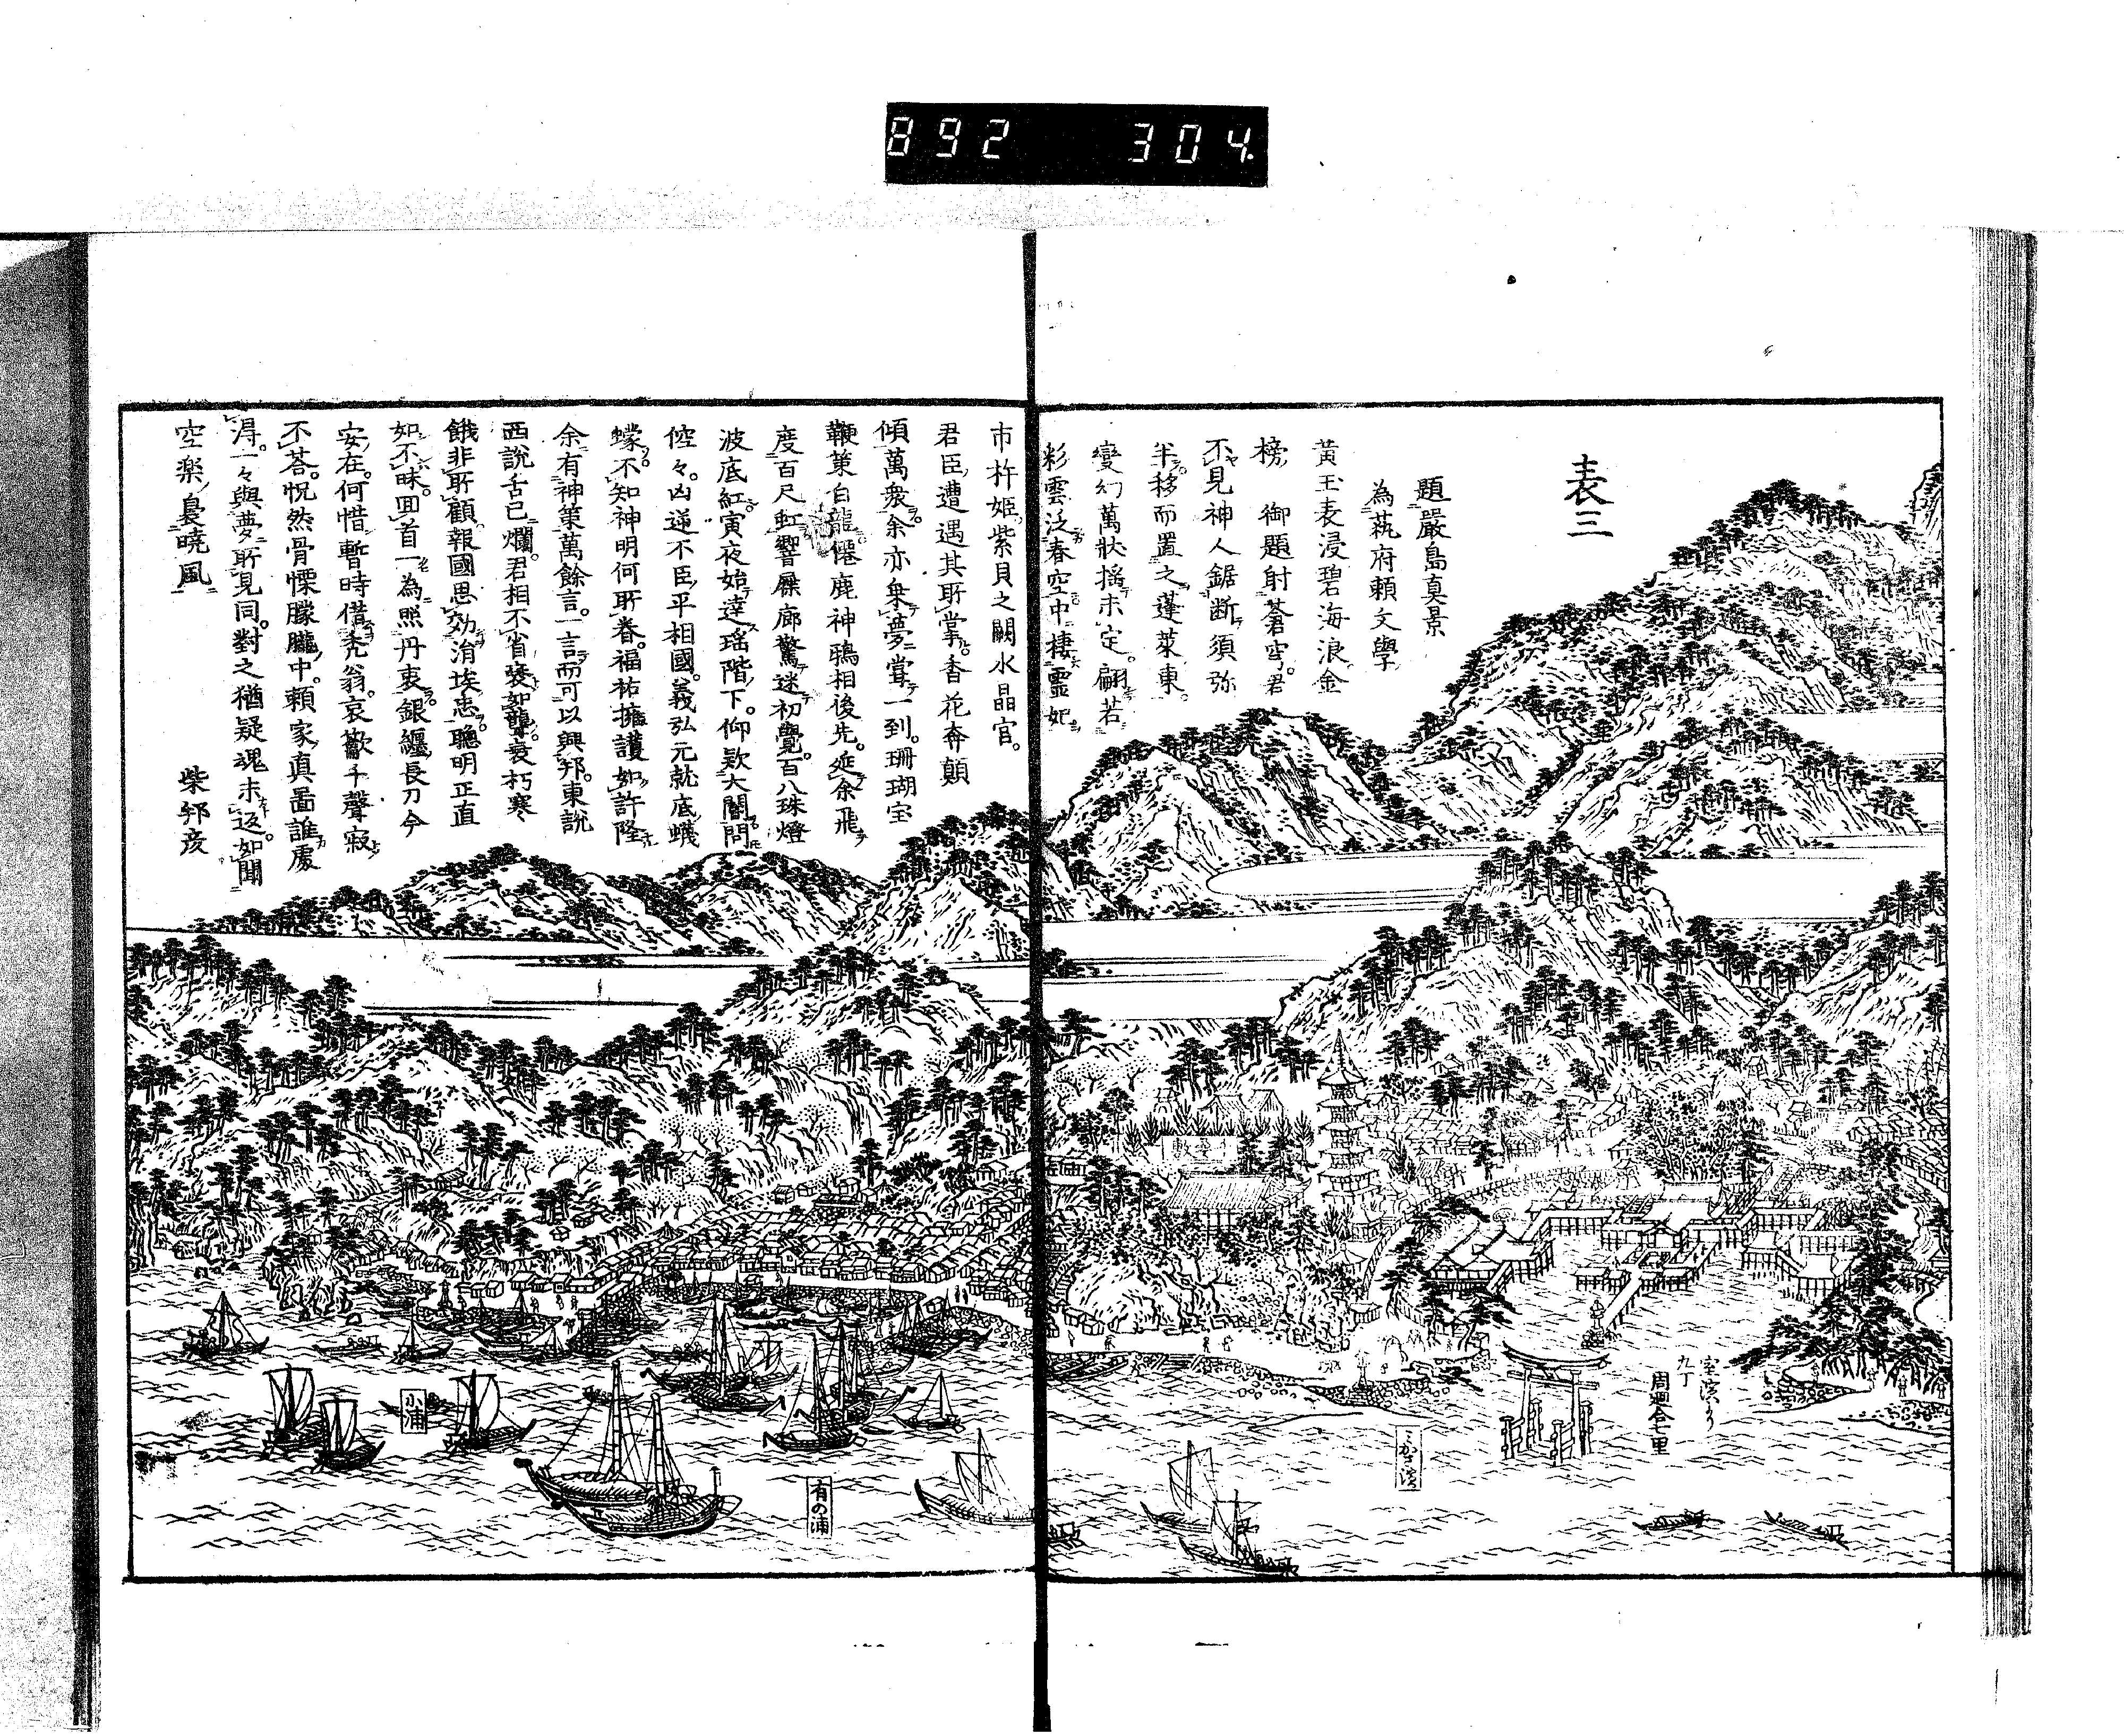 892 304.
表三
題嚴島真景
為藝府頼文學
黃玉表浸碧海浪金
榜 御題射蒼穹。君
不見神人鋸断須弥
半。移而置之蓬萊東。
變幻萬狀搖未定。翩若
彩雲泛春空中棲靈妃
市杵姬。紫貝之闕水晶宮。
君臣遭遇其所掌。香花奔顛
傾萬衆。余亦乘夢嘗一到。珊瑚宝
鞭策白龍。僊鹿神鴉相後先。延余飛
度百尺虹。響屧廊驚迷初覺。百八珠燈
波底紅。寅夜始達瑤階下。仰欵大閽問
倥々。凶逆不臣平相國。義弘元就底蠛
蠓。不知神明何所眷。福祐擁護如許隆
余有神策萬餘言。一言而可以興邦。東說
西說舌已爛。君相不省褎如聾。衰朽寒
餓非所顧。報國思効涓埃忠。聰明正直
如不昧。回首一為照丹衷。銀纏長刀今
安在。何惜暫時借禿翁。哀歡千聲寂
不荅。怳然骨慄朦朧中。頼家真畵誰處
淂。一々與夢所見同。對之猶疑魂未返。如聞
空楽裊曉風
柴邦彦
九丁
周廻合七里
小浦
有の浦